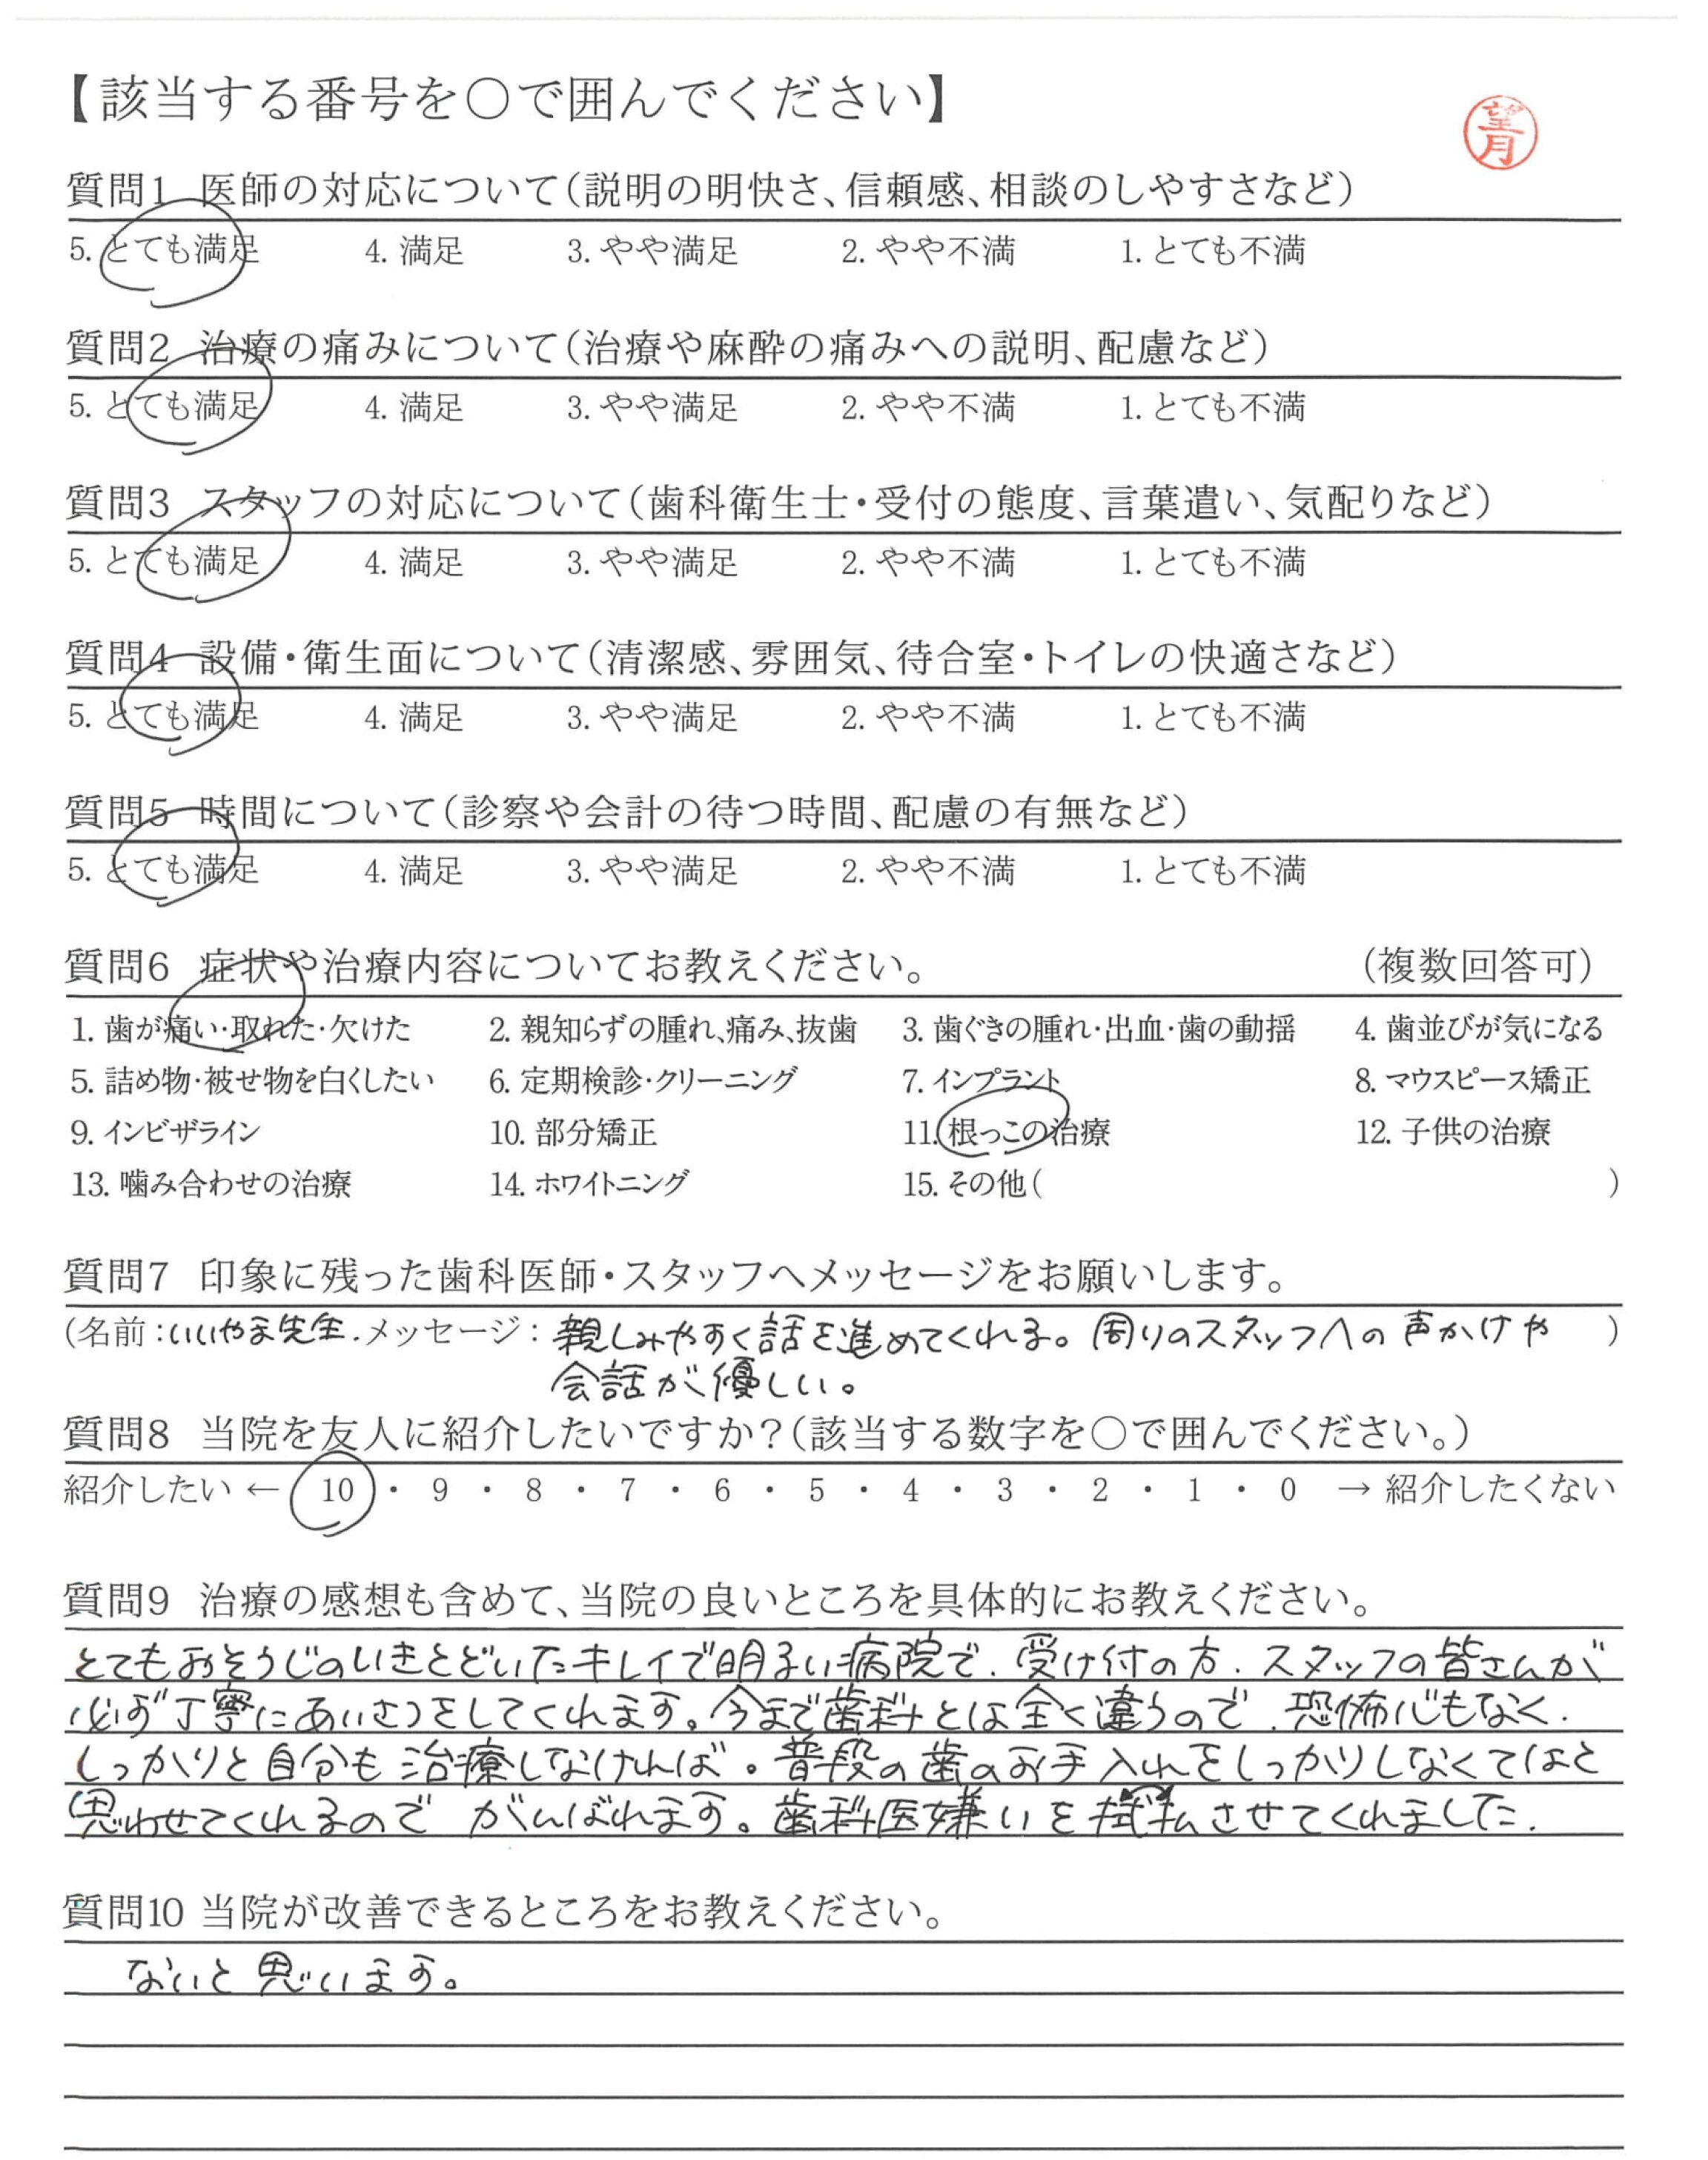 【該当する番号を○で囲んでください】
望月
質問1 医師の対応について(説明の明快さ、信頼感、相談のしやすさなど)
5. とても満足 4. 満足 3. やや満足 2. やや不満 1. とても不満
質問2 治療の痛みについて(治療や麻酔の痛みへの説明、配慮など)
5. とても満足 4. 満足 3. やや満足 2. やや不満 1. とても不満
質問3 スタッフの対応について(歯科衛生士・受付の態度、言葉遣い、気配りなど)
5. とても満足 4. 満足 3. やや満足 2. やや不満 1. とても不満
質問4 設備・衛生面について(清潔感、雰囲気、待合室・トイレの快適さなど)
5. とても満足 4. 満足 3. やや満足 2. やや不満 1. とても不満
質問5 時間について(診察や会計の待つ時間、配慮の有無など)
5. とても満足 4. 満足 3. やや満足 2. やや不満 1. とても不満
質問6 症状や治療内容についてお教えください。 (複数回答可)
1. 歯が痛い・取れた・欠けた 2. 親知らずの腫れ、痛み、抜歯 3. 歯ぐきの腫れ・出血・歯の動揺 4. 歯並びが気になる
5. 詰め物・被せ物を白くしたい 6. 定期検診・クリーニング 7. インプラント 8. マウスピース矯正
9. インビザライン 10. 部分矯正 11. 根っこの治療 12. 子供の治療
13. 噛み合わせの治療 14. ホワイトニング 15. その他( )
質問7 印象に残った歯科医師・スタッフへメッセージをお願いします。
(名前:いいやま先生. メッセージ: 親しみやすく話を進めてくれる。周りのスタッフへの声かけや )
会話が優しい。
質問8 当院を友人に紹介したいですか?(該当する数字を○で囲んでください。)
紹介したい ← 10 ・ 9 ・ 8 ・ 7 ・ 6 ・ 5 ・ 4 ・ 3 ・ 2 ・ 1 ・ 0 → 紹介したくない
質問9 治療の感想も含めて、当院の良いところを具体的にお教えください。
とてもおそうじのいきとどいたキレイで明るい病院で、受け付の方、スタッフの皆さんが
必ず丁寧にあいさつをしてくれます。今まで歯科とは全く違うので、恐怖心もなく、
しっかりと自分も治療しなければ。普段の歯のお手入れをしっかりしなくてはと
思わせてくれるので がんばれます。歯科医嫌いを拭払させてくれました.
質問10 当院が改善できるところをお教えください。
ないと思います。